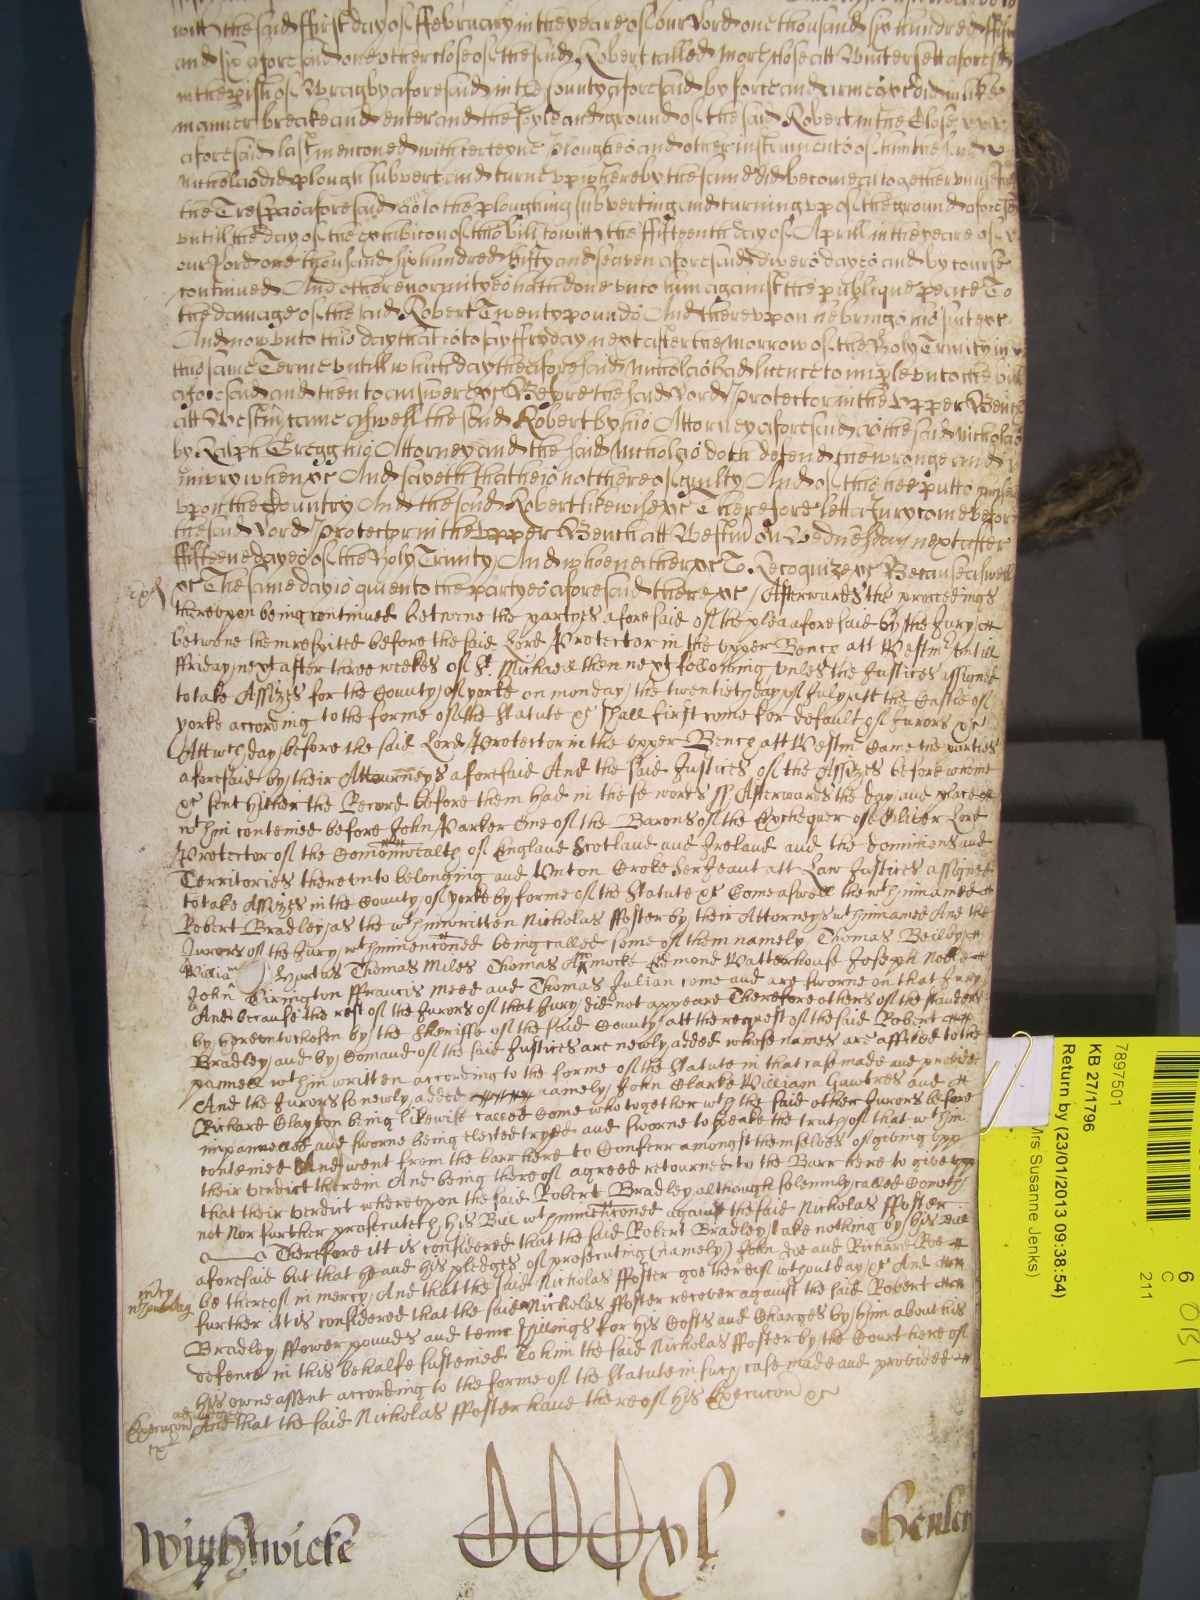 witt the said ffirst day of ffebruary in the yeare of our Lord one thousand six hundred ffifty
and six aforesaid one other close of the said Robert called More close att Wintersett aforesaid
in the pish of Wragby aforesaid in the County aforesaid by force and armes &c did in like
manner breake and enter and the soyle and ground of the said Robert in the Close
aforesaid last menconed with certeyne ploughes and other instruments of him the said
Nicholas did plough subvert and turne upp whereby the same did become altogether
the Trespas aforesaid as to the ploughing subverting and turning upp of the ground aforesaid
untill the day of the exhibicon of this bill to witt the ffifteenth day of Aprill in the yeare of
our Lord one thousand six hundred ffifty and seaven aforesaid divers dayes and by course
continued And other enormityes hath done unto him against the publique peace To
the damage of the said Robert Twenty pounds And thereupon he brings his suite &c
And now unto this day that is to say ffryday next after the morrow of the Holy Trinity in
this same Terme untill which day the aforesaid Nicholas had licence to imple unto the bill
aforesaid and then to answere &c Before the said Lord Protector in the Upper Bench
att Westm came aswell the said Robert by his Attorney aforesaid as the said Nicholas
by Ralph Gregg his Attorney and the said Nicholas doth defend the wronge and
iniury when &c And sayeth that he is not thereof guilty And of this hee putts himselfe
upon the Country And the said Robert likewise &c Therefore lett a Jury come before
the said Lord Protector in the Upper Bench att Westm on Wednesday next after
ffifteene dayes of the Holy Trinity And who neither &c To Recognize &c Because aswell
&c The same day is given to the partyes aforesaid there &c / Afterwards the proceedings
thereupon being continued betweene the partyes aforesaid of the plea aforesaid by the Jury
betweene them respited before the said Lord Protector in the upper Bench att Westm untill
ffriday next after three weekes of St Michaell then next following unles the Justices assigned
to take Assizes for the County of yorke on monday the twentieth day of July att the Castle of
yorke according to the forme of the Statute &c shall first come for default of Jurors &c
Att wch day before the said Lord Protector in the upper Bench att Westm Came the parties
aforesaid by their Attourneys aforesaid And the said Justices of the Assizes before whome
&c sent hither the Record before them had in these words ss Afterwards the day and place
wthin conteined before John Parker One of the Barons of the Exchequer of Oliver Lord
Protector of the Comonwealth of England Scotland and Ireland and the dominions and
Territories thereunto belonging and Unton Croke Serjeant att Law Justices assigned
to take Assizes in the County of yorke by forme of the Statute &c Come aswell the wthinnamed
Robert Bradley as the wthinwritten Nicholas ffoster by their Attorneys wthinnamed And the
Jurors of the Jury wthinmenconed being called some of them namely Thomas Beilby
Willia Thomas Miles Thomas Edmond Watterhouse Joseph Noble
John Ffrancis Mead and Thomas Julian come and are sworne on that Jury
And because the rest of the Jurors of that Jury did not appeare Therefore others of the standers
by hereunto chosen by the Sheriffe of the said County att the request of the said Robert
Bradley and by Comand of the said Justices are newly added whose names are affiled to the
pannell wthin written according to the forme of the Statute in that case made and provided
And the Jurors so newly added namely John Clarke William Gawtres and
Richard Clayton being likewise called Come who together wth the said other Jurors before
impannelled and sworne being elected tryed and sworne to speake the truth of that wthin
conteined And went from the barr here to Conferr amongst themselves of giving upp
their verdict therein And being thereof agreed returned to the Barr here to give upp
that their verdict whereupon the said Robert Bradley although solemnly called Cometh
not Nor further prosecuteth his Bill wthinmenconed against the said Nicholas ffoster
Therefore itt is considered that the said Robert Bradley take nothing by his Bill
aforesaid but that he and his pledges of prosecuting (namely) John Doe and Richard Roe
be thereof in mercy And that the said Nicholas ffoster goe thereof wthout day &c And
further itt is considered that the said Nicholas ffoster recover against the said Robert
Bradley ffower pounds and tenn shillings for his Costs and Charges by him about his
defence in this behalfe susteined To him the said Nicholas ffoster by the Court here of
his owne assent according to the forme of the Statute in such case made and provided
adiudged
And that the said Nicholas ffoster have thereof his Execucon &c
Wightwicke
Henley
7897501
KB 27/1796
Return by (23/01/2013 09:38:54)
Mrs Susanne Jenks)
6
C
211